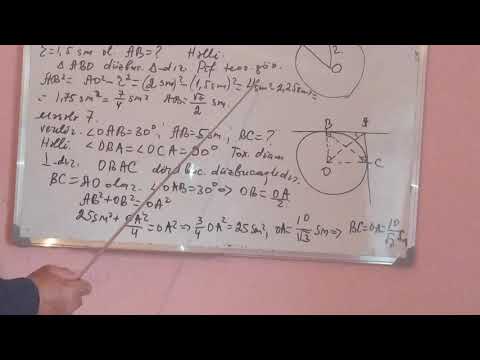 r=1,5 sm ol. AB=? Həlli.
Δ ABO düzbuc. Δ-dır. Pif. teor. görə
AB² = AO² - r² = (2 sm)² - (1,5 sm)² = 4 sm² - 2,25 sm² =
= 1,75 sm² = 7/4 sm² AB = √7/2 sm.
məsələ 7.
verilir. ∠OAB = 30°, AB = 5 sm, BC = ?
Həlli. ∠OBA = ∠OCA = 90° Tox. diam
⊥ dır. OBAC düzbucaqlıdır.
BC = AO olar. ∠OAB = 30° ⇒ OB = OA/2
AB² + OB² = OA²
25 sm² + OA²/4 = OA² ⇒ 3/4 OA² = 25 sm², OA = 10/√3 sm ⇒ BC = OA = 10/√3 sm
2
O
B
A
O
C